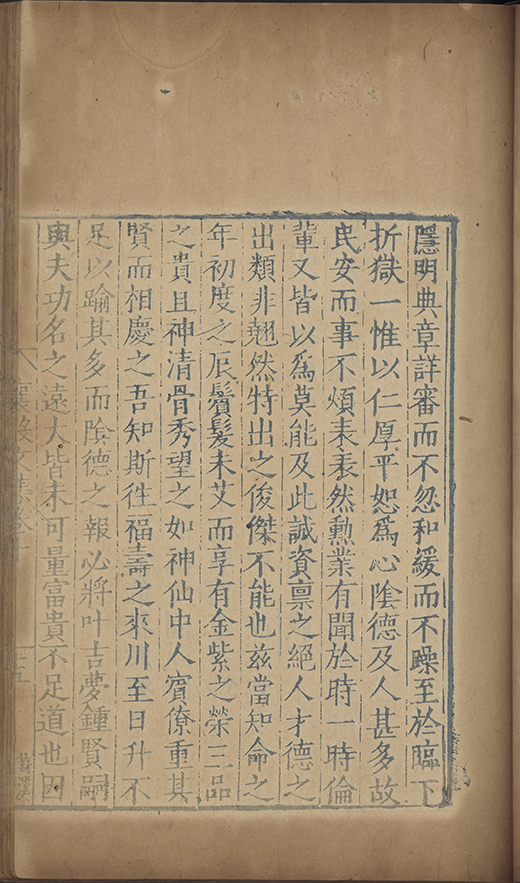 隱明典章詳審而不忽和緩而不躁至於臨下
折獄一惟以仁厚平恕爲心陰德及人甚多故
民安而事不煩表表然勲業有聞於時一時倫
輩又皆以爲莫能及此誠資禀之絕人才德之
出類非翹然特出之俊傑不能也兹當知命之
年初度之辰鬢髮未艾而享有金紫之榮三品
之貴且神清骨秀望之如神仙中人賓僚重其
賢而相慶之吾知斯徃福壽之來川至日升不
足以踰其多而陰德之報必將叶吉夢鍾賢嗣
與夫功名之遠大皆未可量富貴不足道也因
襄毅文集卷十